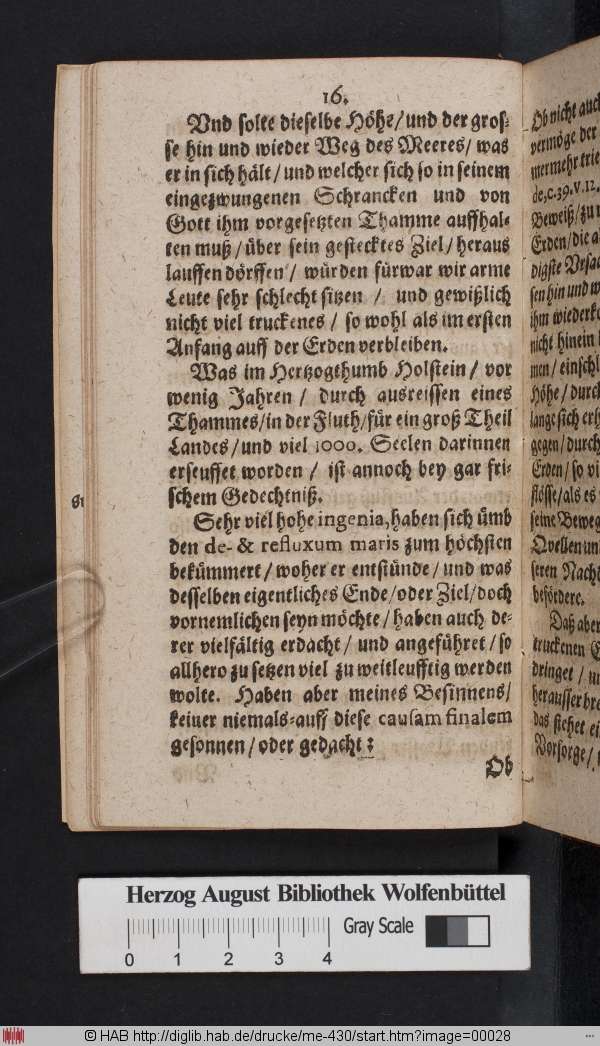 16.
Vnd solte dieselbe Höhe/und der gros-
se hin und wieder Weg des Meeres/ was
er in sich hält/und welcher sich so in seinem
eingezwungenen Schrancken und von
Gott ihm vorgesetzten Thamme auffhal-
ten muß/über sein gestecktes Ziel/heraus
lauffen dörffen/ würden fürwar wir arme
Leute sehr schlecht sitzen / und gewißlich
nicht viel truckenes / so wohl als im ersten
Anfang auff der Erden verbleiben.
Was im Hertzogthumb Holstein/ vor
wenig Jahren / durch ausreissen eines
Thammes/in der Fluth/für ein groß Theil
Landes/und viel 1000. Seelen darinnen
erseuffet worden / ist annoch bey gar fri-
schem Gedechtniß.
Sehr viel hohe ingenia, haben sich ümb
den de- & refluxum maris zum höchsten
bekümmert/woher er entstünde/und was
desselben eigentliches Ende/oder Ziel/doch
vornemlichen seyn möchte/haben auch de-
rer vielfältig erdacht/und angeführet/so
allhero zu setzen viel zu weitleufftig werden
wolte. Haben aber meines Besinnens/
keiner niemals-auff diese causam finalem
gesonnen/oder gedacht:
Ob
Ob nicht auch
vermöge der
de, c.39. v. 12.
Beweiß/zu
Erden/die
digste Vrsa
sen hin und w
ihm wiederk
nicht hinein
men/einschl
Höhe/durch
lange sich erh
gegen/durch
Erden/so vi
stösse/als es
seine Beweg
Qvellen un
seren Nach
befördere.
Daß aber
truckenen E
dringet/
herausser bre
das siehet ei
Vorsorge/
Herzog August Bibliothek Wolfenbüttel
Gray Scale
0 1 2 3 4
© HAB http://diglib.hab.de/drucke/me-430/start.htm?image=00028